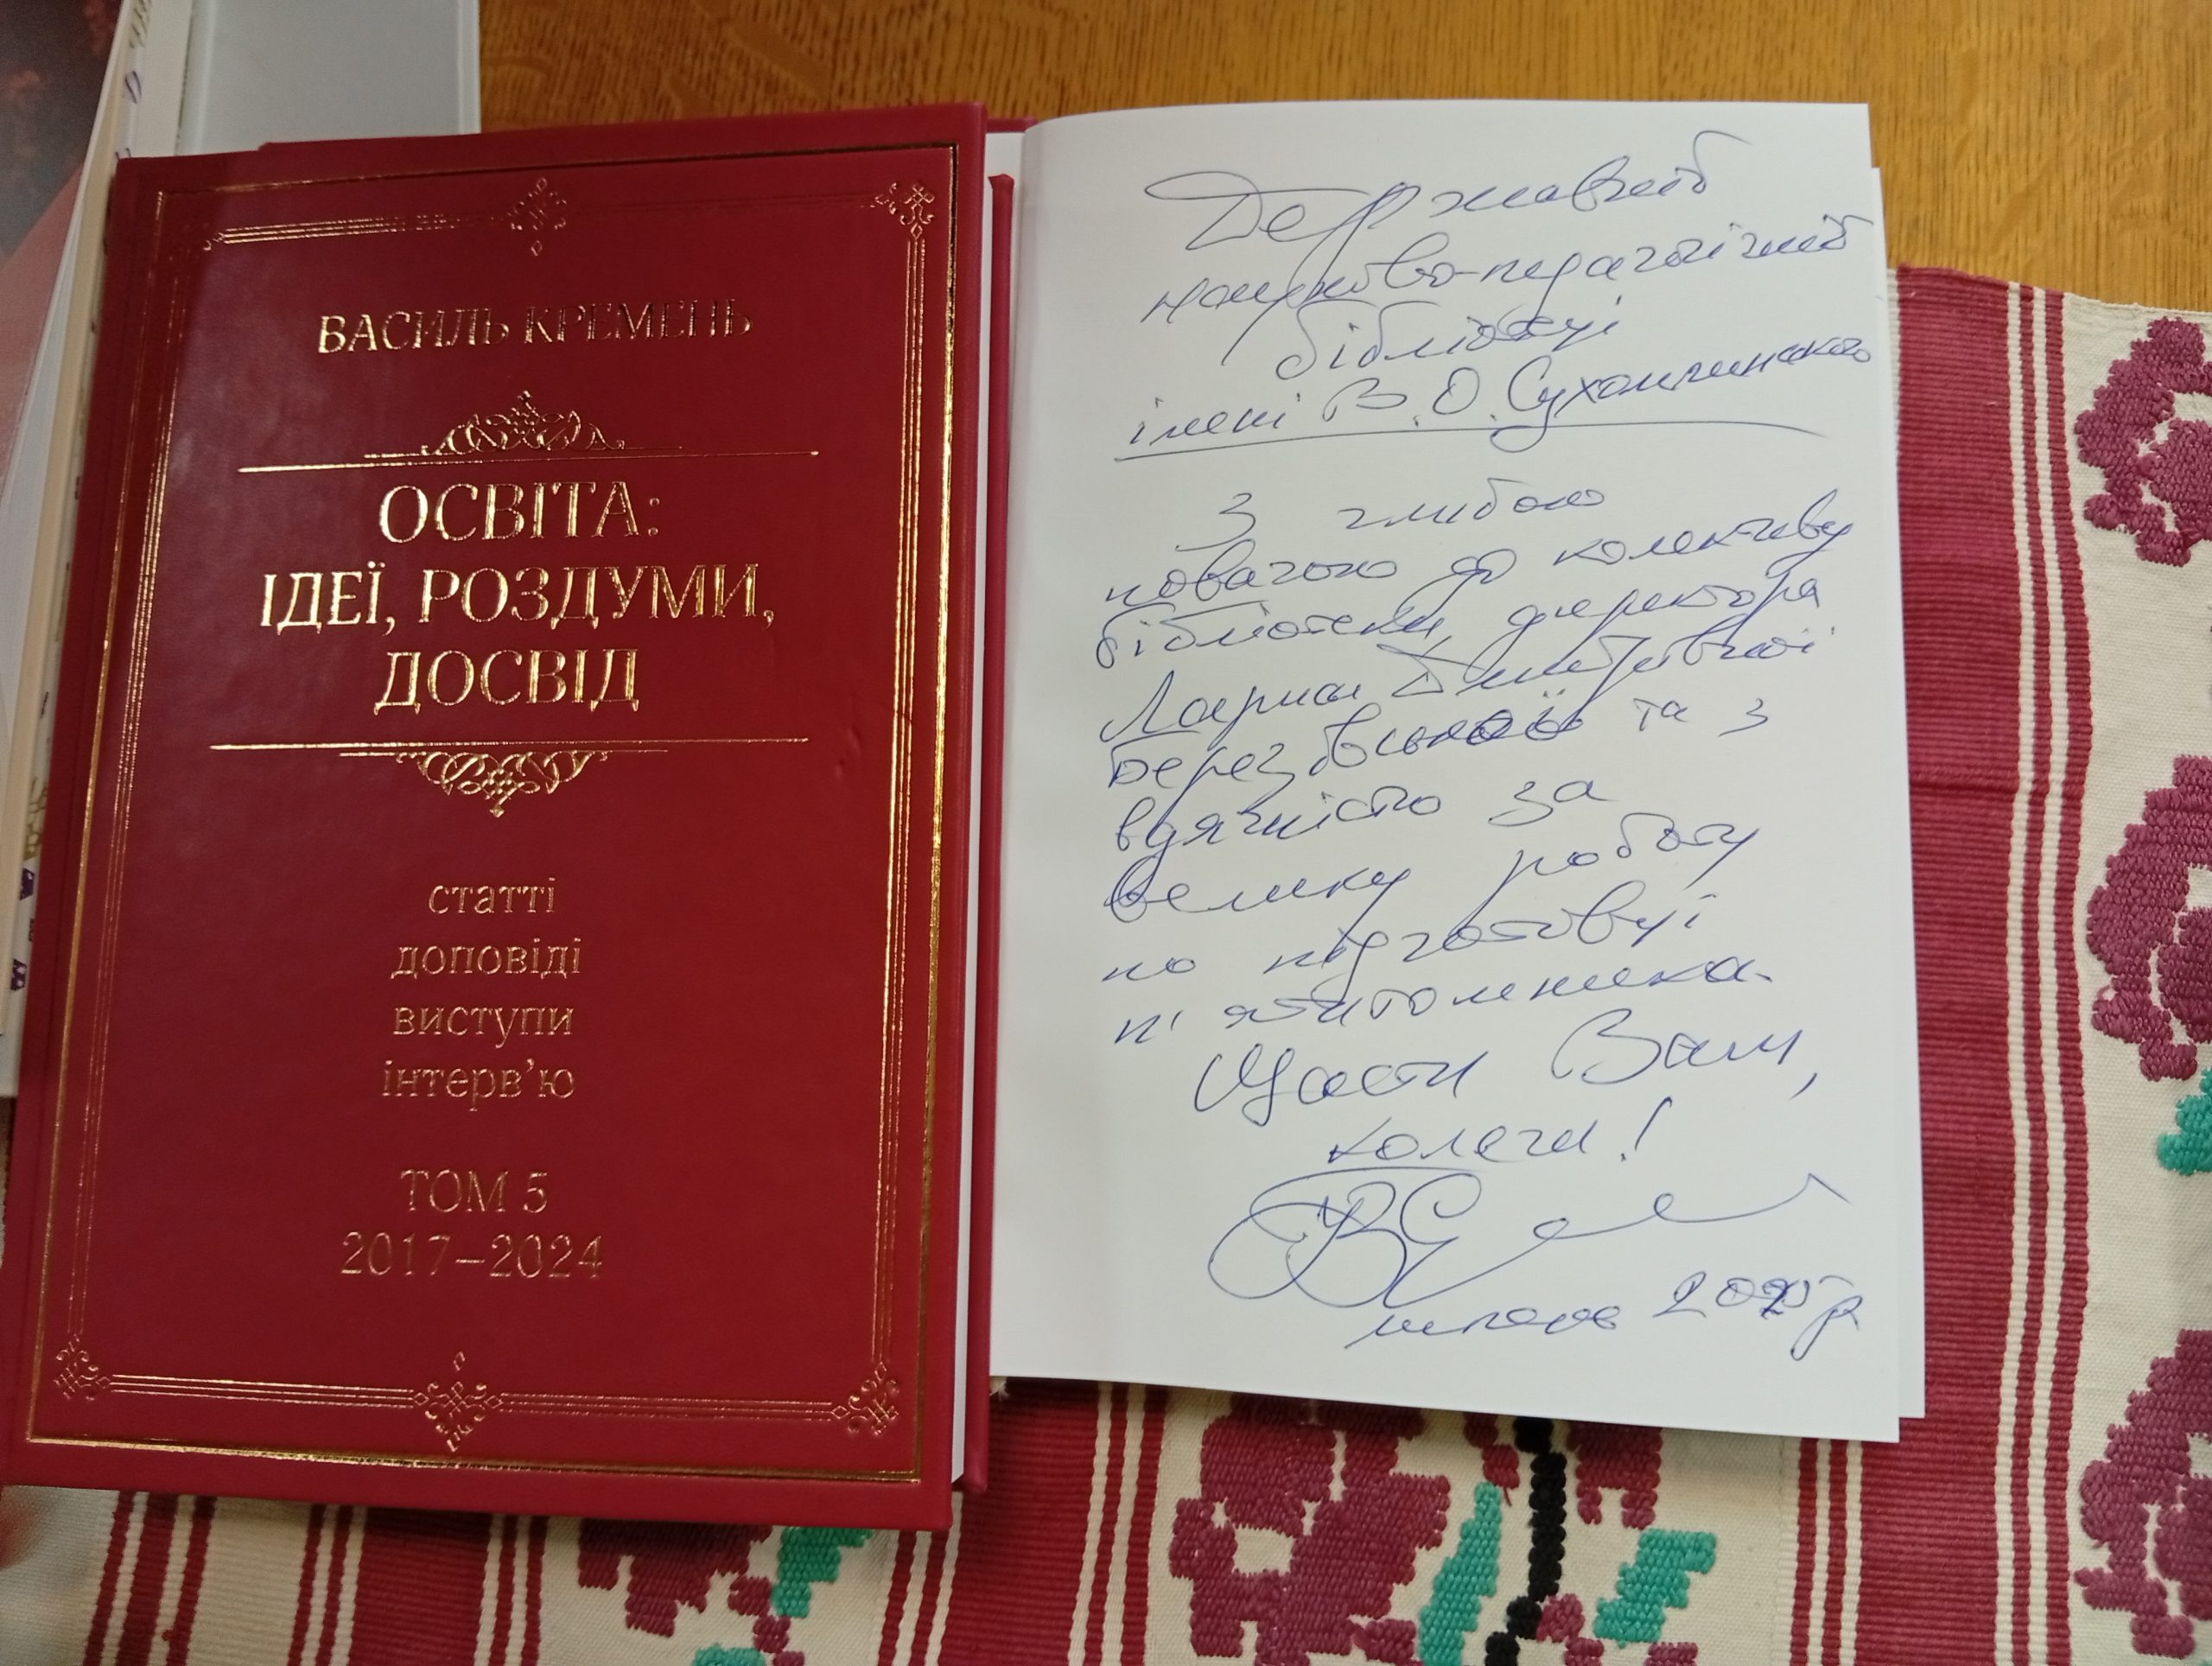 ВАСИЛЬ КРЕМЕНЬ
ОСВІТА:
ІДЕЇ, РОЗДУМИ,
ДОСВІД
статті
доповіді
виступи
інтерв'ю
ТОМ 5
2017–2024
Державній
науково-педагогічній
бібліотеці
імені В.О. Сухомлинського
З глибокою
повагою до колективу
бібліотеки, директора
Лариси Дмитрівної
Березівської та з
вдячністю за
велику роботу
по підготовці
п'ятитомника.
Щасти Вам,
колеги!
2025 р